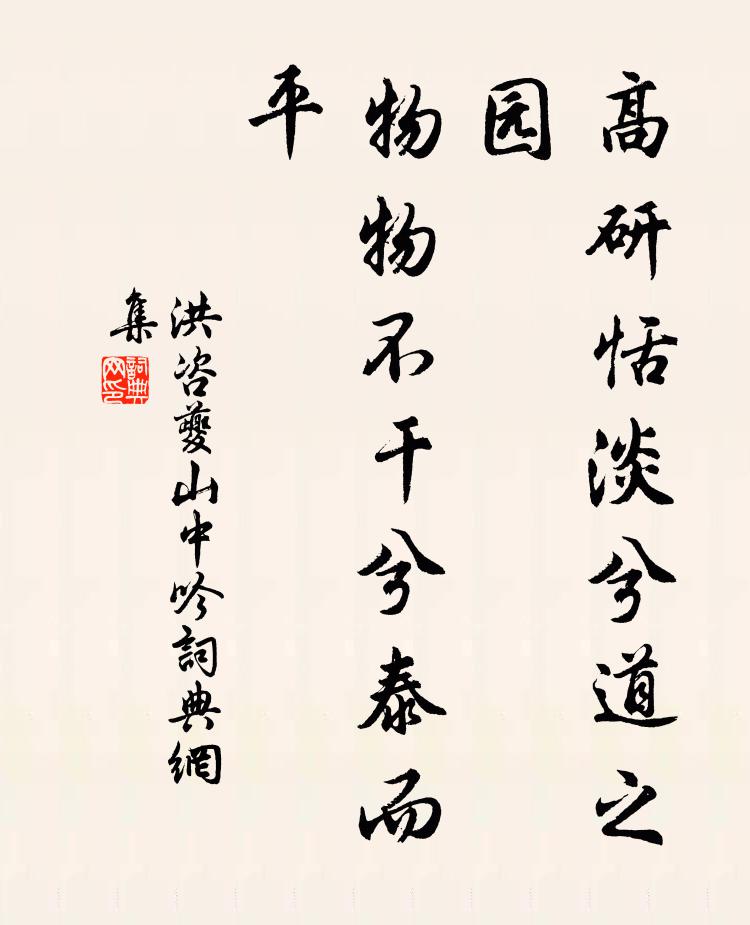 高研恬淡兮道之
园
物物不干兮泰而
平
洪咨夔山中吟詞典網
集
詞典網印